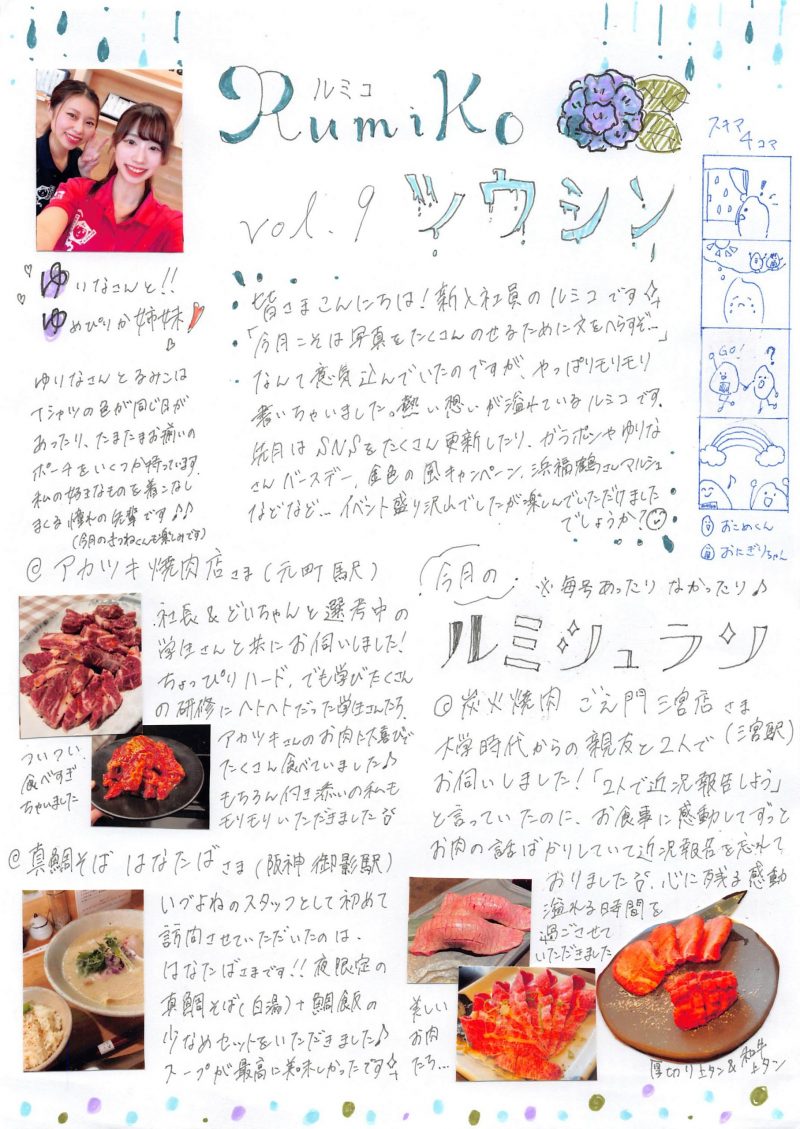 ルミコ
Rumiko
vol.9 ツウシン
スキマ
4コマ
GO!
?
おこめくん
おにぎりちゃん
ゆりなさんと!!
ゆめぴりか姉妹
ゆりなさんとるみこは
Tシャツの色が同じ日が
あったり、たまたまお揃いの
ポーチをいくつか持っています。
私の好きなものを着こなし
まくる憧れの先輩です♪♪
(今月のきつねくんも楽しみです)
皆さまこんにちは!新入社員のルミコです
「今月こそは写真をたくさんのせるために文をへらすぞ…」
なんて意気込んでいたのですが、やっぱりモリモリ
書いちゃいました。熱い想いが溢れているルミコです。
先月はSNSをたくさん更新したり、ガラポンやゆりな
さんバースデー、金色の風キャンペーン、浜福鶴さんマルシェ
などなど…イベント盛り沢山でしたが楽しんでいただけました
でしょうか?
@アカツキ焼肉店さま(元町駅)
社長&どいちゃんと選考中の
学生さんと共にお伺いしました!
ちょっぴりハード、でも学びたくさん
の研修にヘトヘトだった学生さんたち、
アカツキさんのお肉に大喜びで
たくさん食べていました♪
もちろん付き添いの私も
モリモリいただきました
ついつい
食べすぎ
ちゃいました
@真鯛そば はなたばさま(阪神 御影駅)
いづよねのスタッフとして初めて
訪問させていただいたのは、
はなたばさまです!!夜限定の
真鯛そば(白湯)+鯛飯の
少なめセットをいただきました♪
スープが最高に美味しかったです
今月の
※毎号あったりなかったり♪
ルミシュラン
@炭火焼肉 ごえ門 三宮店さま
(三宮駅)
大学時代からの親友と2人で
お伺いしました!「2人で近況報告しよう」
と言っていたのに、お食事に感動してずっと
お肉の話ばかりしていて近況報告を忘れて
おりました。心に残る感動
溢れる時間を
過ごさせて
いただきました
美しい
お肉
たち…
厚切り上タン&和牛
上タン